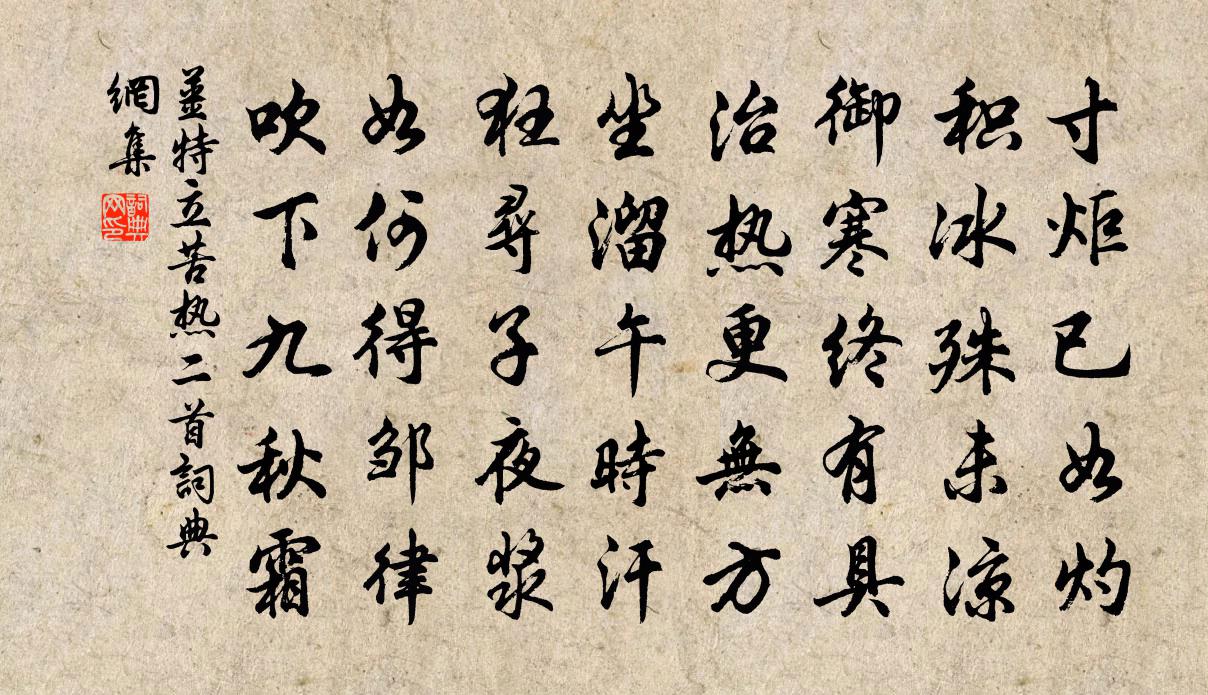 寸炬已如灼
积冰殊未凉
御寒终有具
治热更無方
坐溜午時汗
狂尋子夜漿
如何得邹律
吹下九秋霜
薑特立苦热二首詞典
網集
詞典
网印